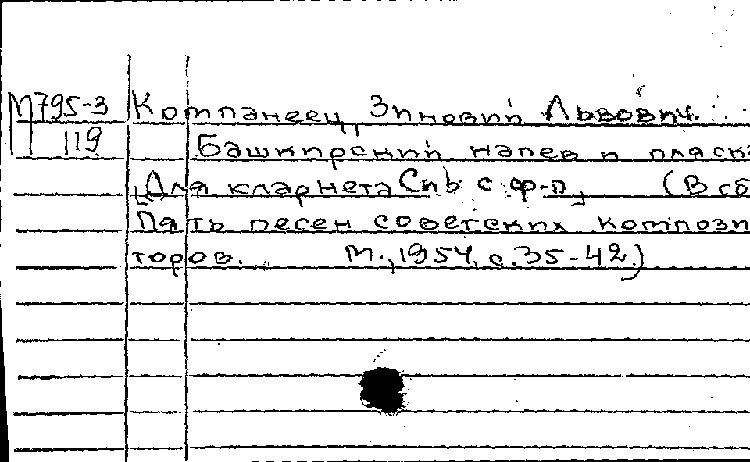 М795-3 Компанеец, Зиновий Львович.
119 Башкирский напев и пляск
[Для кларнета Си b с ф-п.] (В сб
Пять песен советских компози
торов. М., 1954, с. 35-42.)